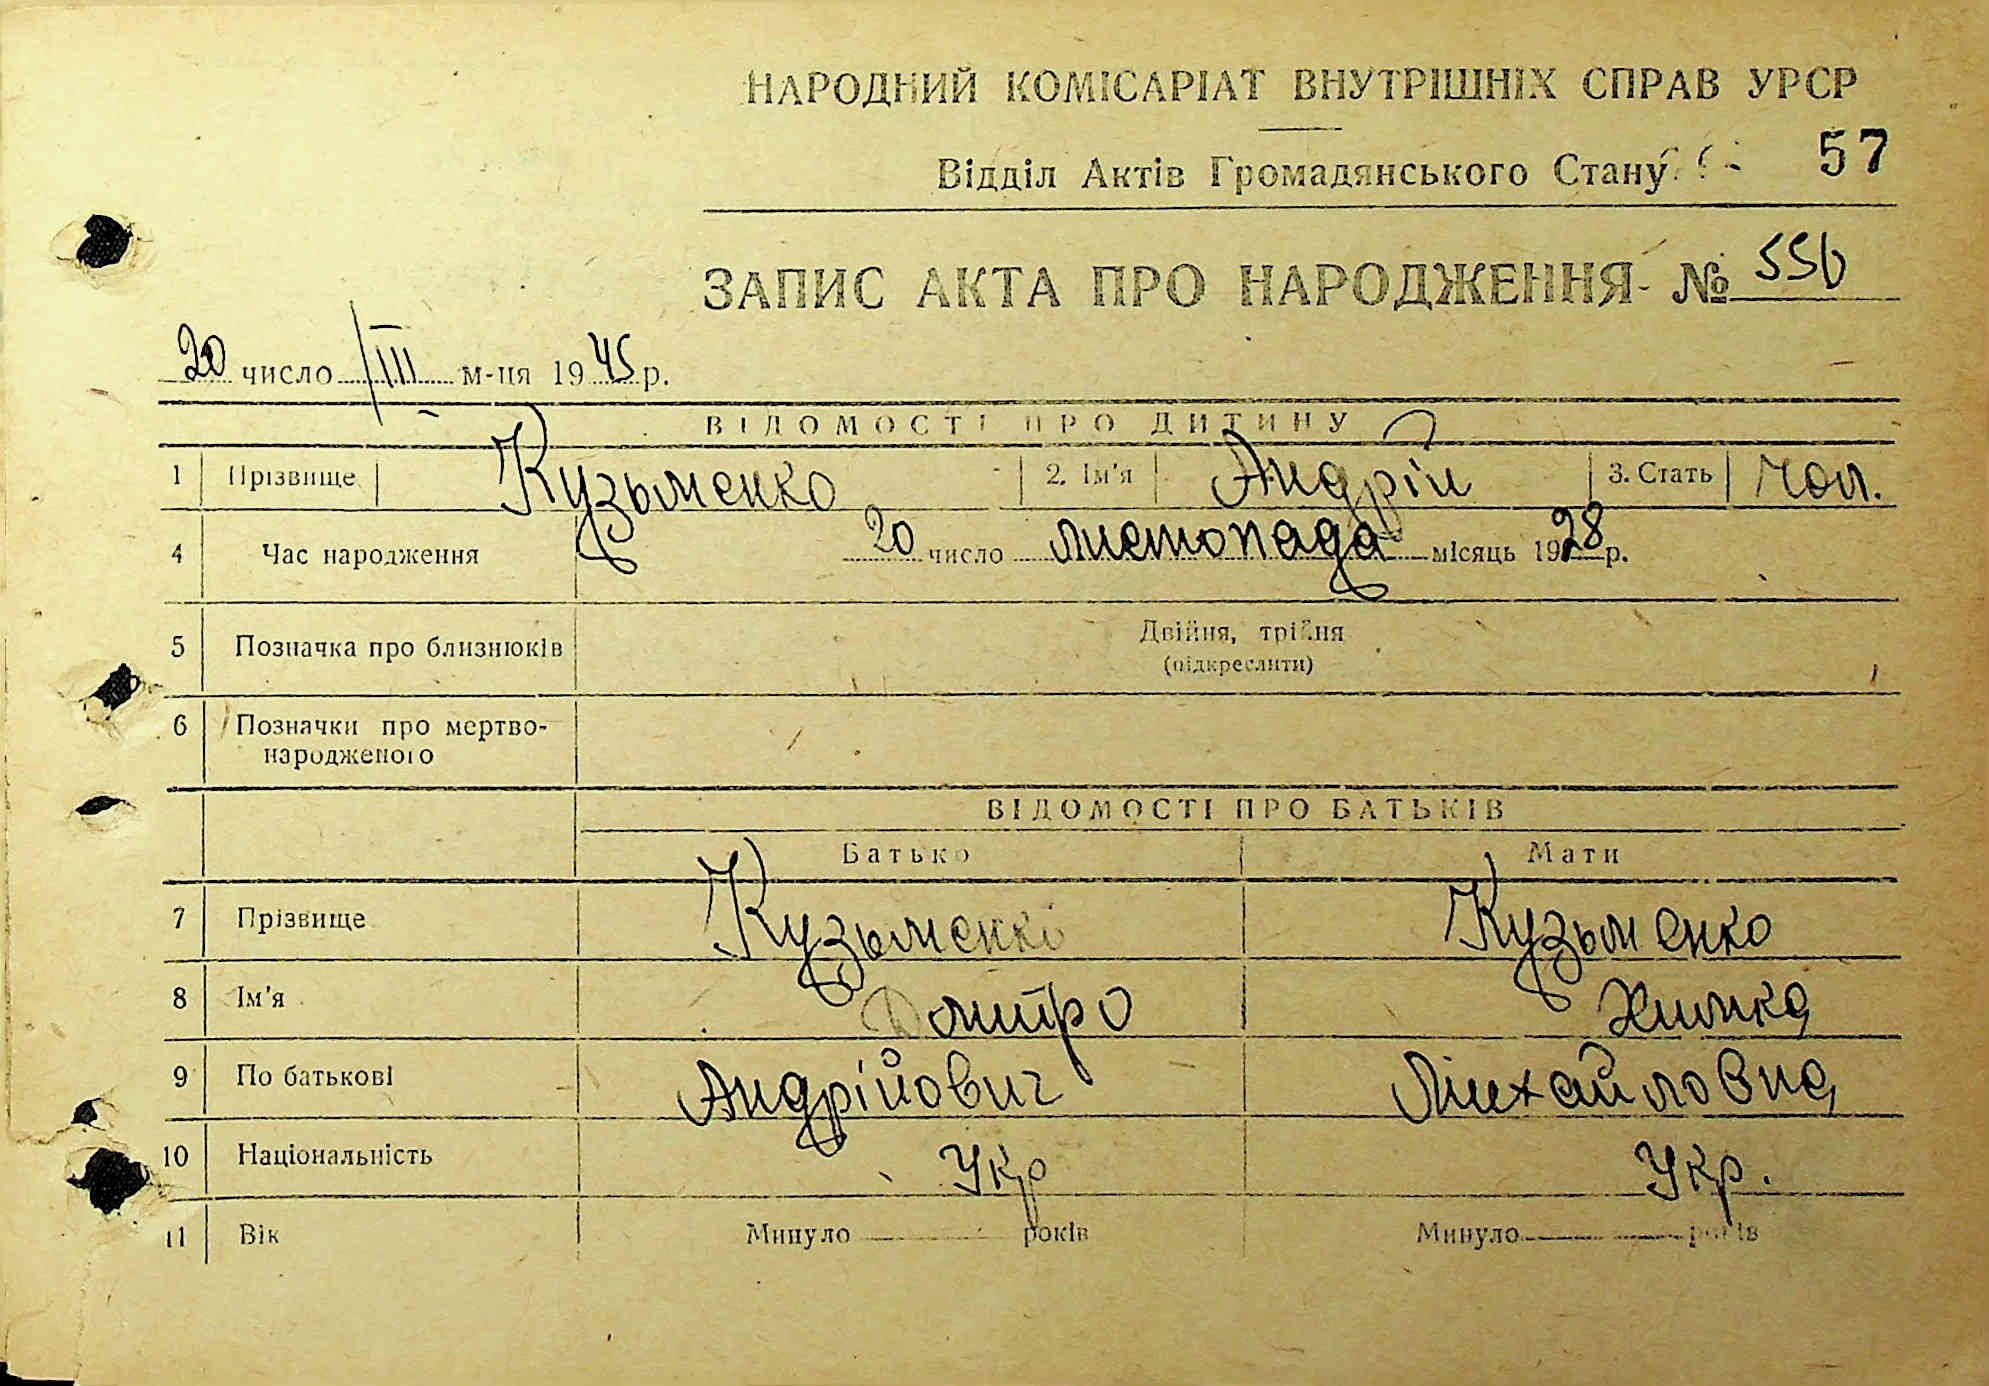 НАРОДНИЙ КОМІСАРІАТ ВНУТРІШНІХ СПРАВ УРСР
Відділ Актів Громадянського Стану 57
ЗАПИС АКТА ПРО НАРОДЖЕННЯ № 556
20 число III м-ця 1945 р.
ВІДОМОСТІ ПРО ДИТИНУ
1 Прізвище Кузьменко 2. Ім'я Андрій 3. Стать чол.
4 Час народження 20 число листопада місяць 1928 р.
5 Позначка про близнюків Двійня, трійня
(підкреслити)
6 Позначки про мертво-
народженого
ВІДОМОСТІ ПРО БАТЬКІВ
Батько Мати
7 Прізвище Кузьменко Кузьменко
8 Ім'я Дмитро Химка
9 По батькові Андрійович Михайловна
10 Національність Укр Укр.
11 Вік Минуло років Минуло років